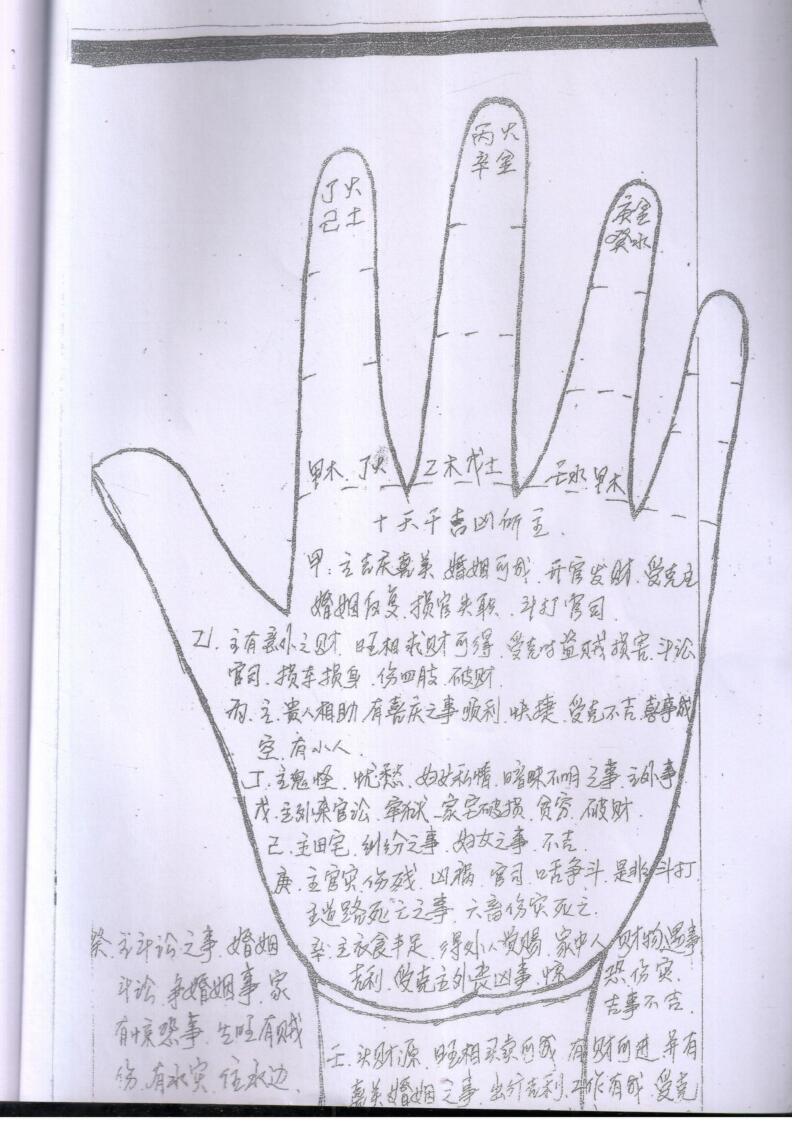 丙火
辛金
丁火
己土
庚金
癸水
甲木 丁火 乙木戊土 壬水 甲木
十天干吉凶所主
甲:主吉庆嘉美 婚姻可成 开官发财 受克主
婚姻反复、损官失职 斗打官司
乙、主有意外之财 旺相求财可得、受克时盗贼损害、斗讼
官司、损车损身、伤四肢、破财
丙、主、贵人相助、有喜庆之事 顺利、快捷、受克不吉、喜事成
空、有小人、
丁、主鬼怪、忧愁、妇女私情、暗昧不明之事、主外事
戊、主外来官讼、牢狱、家宅破损、贫穷、破财
己、主田宅、纠纷之事、妇女之事、不吉
庚、主官灾伤残、凶祸、官司、口舌争斗、是非斗打
主道路死亡之事、六畜伤灾死亡
辛、主衣食丰足、得外人赏赐、家中人 财物遇事
吉利、受克主外丧凶事、惊 恐伤灾、
吉事不吉、
癸、主斗讼之事、婚姻
斗讼、争婚姻事、家
有惊恐事、生旺有贼
伤、有水灾、住水边、
壬、头财源、旺相买卖可成、有财可进 并有
嘉美婚姻之事、出行吉利、工作有成、受克